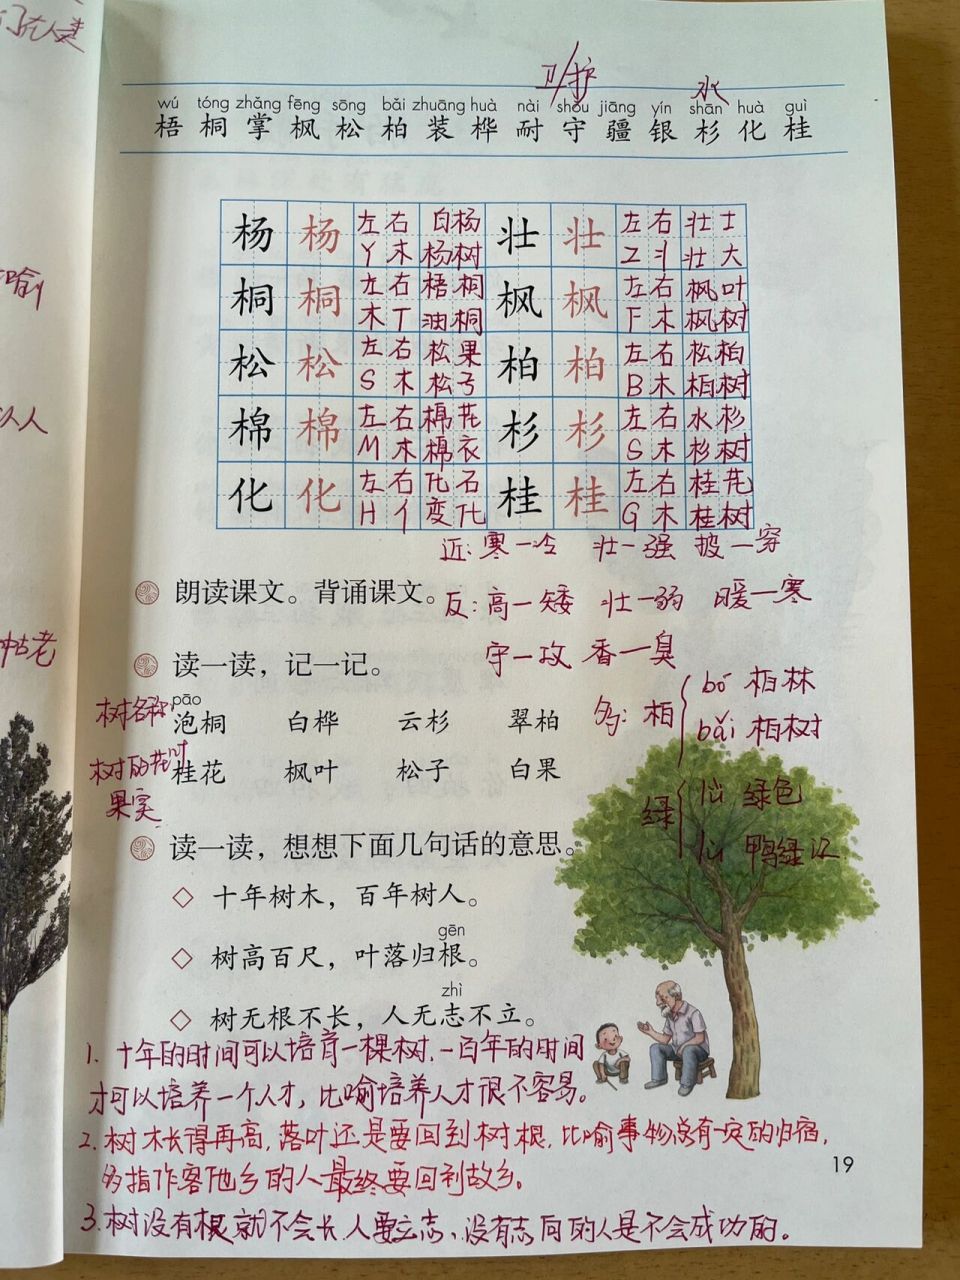 们在人类
喻
以人
帖老
卫/护
水
wú tóng zhǎng fēng sōng bǎi zhuāng huà nài shǒu jiāng yín shān huà guì
梧 桐 掌 枫 松 柏 装 桦 耐 守 疆 银 杉 化 桂
杨 杨 左右 白杨 壮 壮 左右 壮士
Y 木 杨树 Z 丬 壮大
桐 桐 左右 梧桐 枫 枫 左右 枫叶
木 T 油桐 F 木 枫树
松 松 左右 松果 柏 柏 左右 松柏
S 木 松子 B 木 柏树
棉 棉 左右 棉花 杉 杉 左右 水杉
M 木 棉衣 S 木 杉树
化 化 左右 化石 桂 桂 左右 桂花
H 亻 变化 G 木 桂树
近:寒一冷 壮一强 披一穿
朗读课文。背诵课文。
反:高一矮 壮一弱 暖一寒
守一攻 香一臭
读一读,记一记。
树名称 pāo
泡桐 白桦 云杉 翠柏
多:柏 bó 柏林
bǎi 柏树
树的花叶果实
桂花 枫叶 松子 白果
绿 lǜ 绿色
lù 鸭绿江
读一读,想想下面几句话的意思。
◇ 十年树木,百年树人。
gēn
◇ 树高百尺,叶落归根。
zhì
◇ 树无根不长,人无志不立。
1. 十年的时间可以培育一棵树.一百年的时间
才可以培养一个人才,比喻培养人才很不容易。
2. 树木长得再高,落叶还是要回到树根,比喻事物总有一定的归宿,
多指作客他乡的人最终要回到故乡。
3. 树没有根就不会长,人要立志、没有志向的人是不会成功的。
19